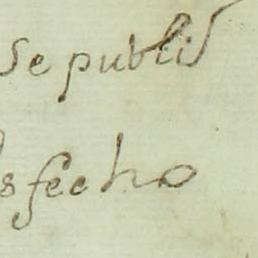 Se publiś
s fecho